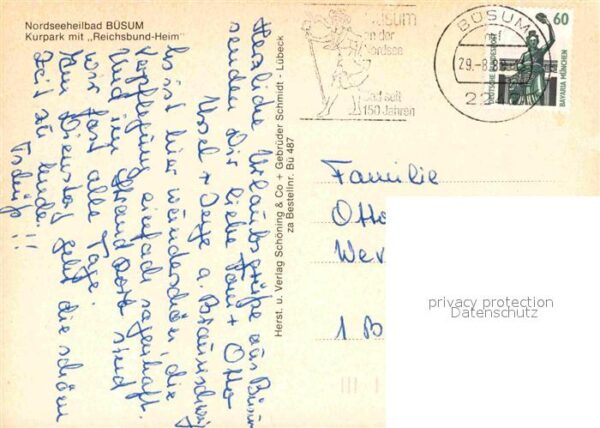 Nordseeheilbad BÜSUM
Kurpark mit „Reichsbund-Heim"
Herzliche Urlaubsgrüße aus Büsum
senden Dir liebe + Otto
Ursel + a. Braunschweig
Es ist hier wunderschön, die
Verpflegung einfach sagenhaft.
Und im Strandkorb sind
wir fast alle Tage.
Am Dienstag geht die schöne
Zeit zu Ende.
Tschüß!!
Herst. u. Verlag Schöning & Co + Gebrüder Schmidt - Lübeck
za Bestellnr. Bü 487
Büsum
an der
Nordsee
Bad seit
150 Jahren
BÜSUM
29.-8.8
22
60
DEUTSCHE BUNDESPOST
BAVARIA MÜNCHEN
Familie
Otto
Wer
1 B
privacy protection
Datenschutz